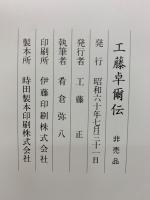 工藤卓爾伝
非売品
発行 昭和六十年七月三十一日
発行者 工藤正
執筆者 肴倉弥八
印刷所 伊藤印刷株式会社
製本所 時田製本印刷株式会社